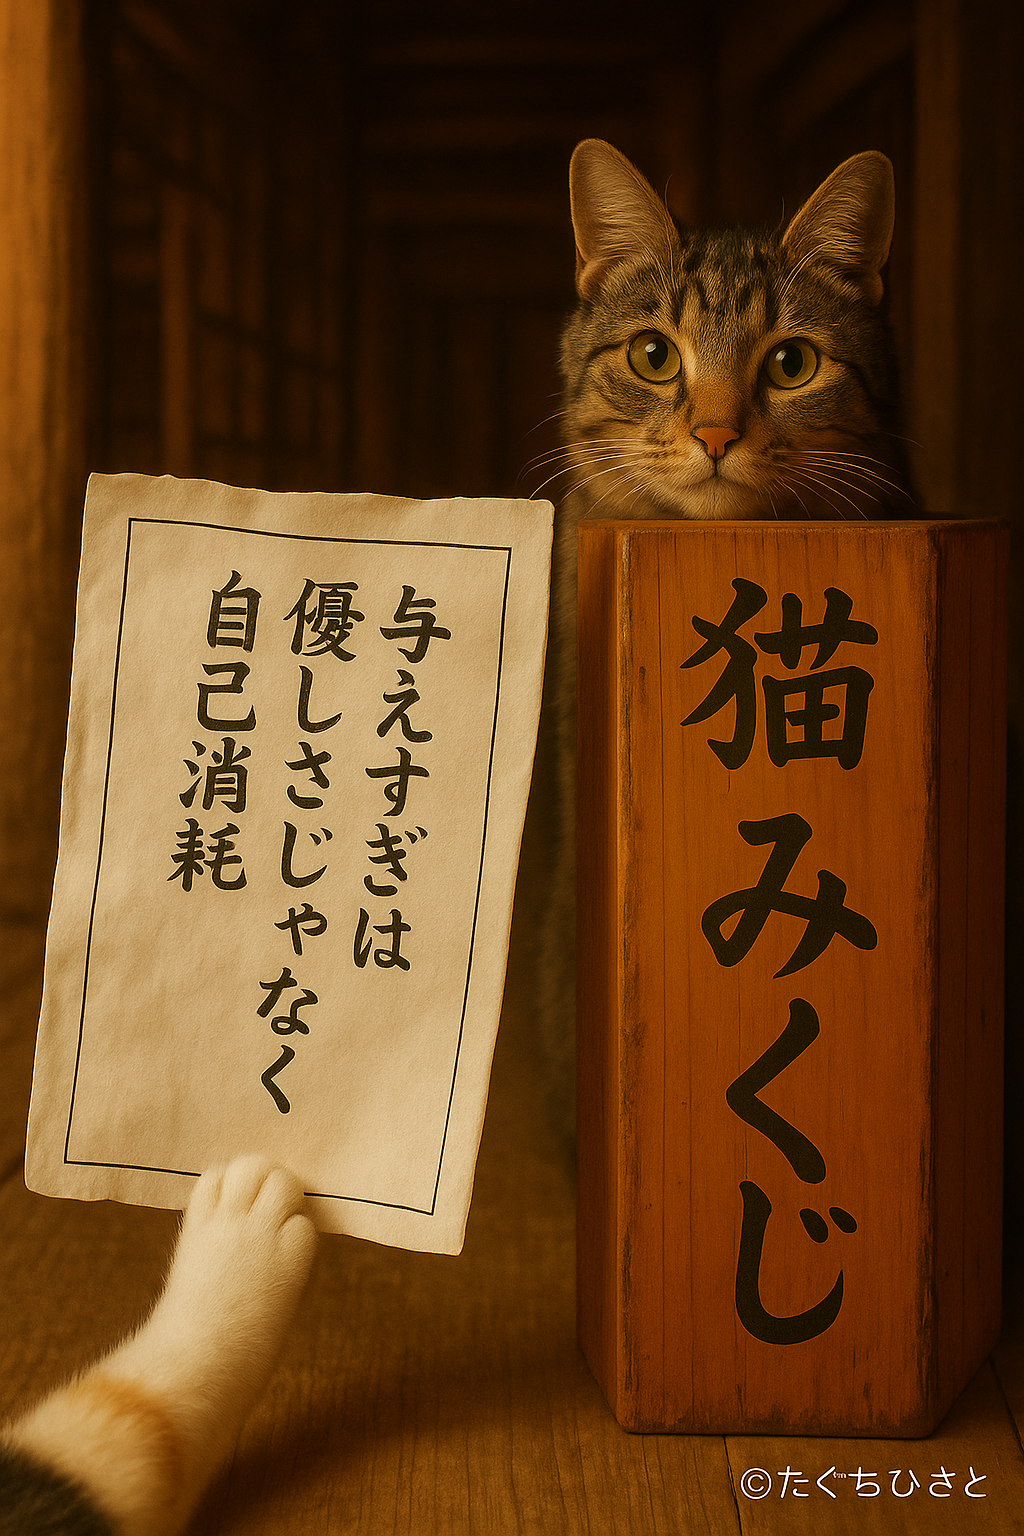 与えすぎは
優しさじゃなく
自己消耗
猫みくじ
©たぐちひさと